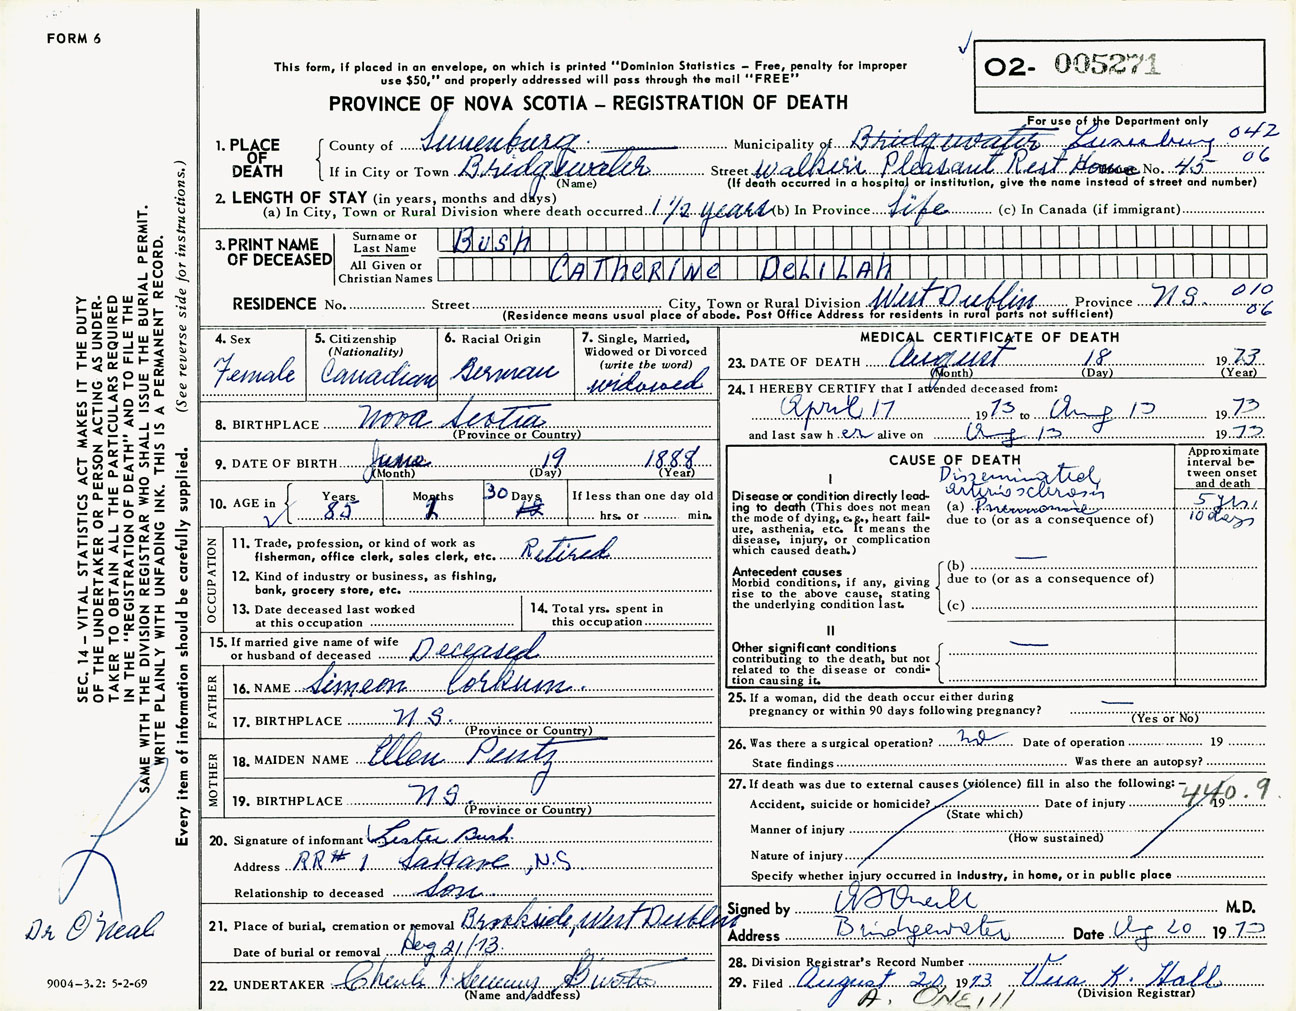 FORM 6
This form, if placed in an envelope, on which is printed "Dominion Statistics – Free, penalty for improper
use $50," and properly addressed will pass through the mail "FREE"
O2- 005271
PROVINCE OF NOVA SCOTIA – REGISTRATION OF DEATH
For use of the Department only
1. PLACE OF DEATH
County of Lunenburg Municipality of Bridgewater Lunenburg 042
If in City or Town Bridgewater Street Walker's Pleasant Rest Home No. 45 06
(Name) (If death occurred in a hospital or institution, give the name instead of street and number)
2. LENGTH OF STAY (in years, months and days)
(a) In City, Town or Rural Division where death occurred 1 1/2 years (b) In Province Life (c) In Canada (if immigrant)
3. PRINT NAME OF DECEASED
Surname or Last Name Bush
All Given or Christian Names CATHERINE DELILAH
RESIDENCE No. Street City, Town or Rural Division West Dublin Province N.S. 010
(Residence means usual place of abode. Post Office Address for residents in rural parts not sufficient) 06
4. Sex
Female
5. Citizenship
(Nationality)
Canadian
6. Racial Origin
German
7. Single, Married,
Widowed or Divorced
(write the word)
widowed
8. BIRTHPLACE Nova Scotia
(Province or Country)
9. DATE OF BIRTH June 19 1888
(Month) (Day) (Year)
10. AGE in
Years Months 30 Days If less than one day old
85 1 hrs. or min.
OCCUPATION
11. Trade, profession, or kind of work as
fisherman, office clerk, sales clerk, etc. Retired
12. Kind of industry or business, as fishing,
bank, grocery store, etc.
13. Date deceased last worked
at this occupation
14. Total yrs. spent in
this occupation
15. If married give name of wife
or husband of deceased Deceased
FATHER
16. NAME Simeon Corkum.
17. BIRTHPLACE N.S.
(Province or Country)
MOTHER
18. MAIDEN NAME Ellen Pentz
19. BIRTHPLACE N.S.
(Province or Country)
20. Signature of informant Lester Bush.
Address RR# 1 LaHave, N.S
Relationship to deceased Son
21. Place of burial, cremation or removal Brookside, West Dublin
Date of burial or removal Aug 21/73.
22. UNDERTAKER
(Name and address)
MEDICAL CERTIFICATE OF DEATH
23. DATE OF DEATH August 18 1973
(Month) (Day) (Year)
24. I HEREBY CERTIFY that I attended deceased from:
April 17 1973 to Aug 13 1973
and last saw her alive on Aug 13 1973
CAUSE OF DEATH
Approximate
interval be-
tween onset
and death
I
Disease or condition directly lead-
ing to death (This does not mean
the mode of dying, e.g., heart fail-
ure, asthenia, etc. It means the
disease, injury, or complication
which caused death.)
Disseminated
arteriosclerosis 5 yrs.
(a) Pneumonia 10 days
due to (or as a consequence of)
Antecedent causes
Morbid conditions, if any, giving
rise to the above cause, stating
the underlying condition last.
(b) —
due to (or as a consequence of)
(c)
II
Other significant conditions
contributing to the death, but not
related to the disease or condi-
tion causing it.
—
25. If a woman, did the death occur either during
pregnancy or within 90 days following pregnancy? —
(Yes or No)
26. Was there a surgical operation? no Date of operation 19
State findings Was there an autopsy?
27. If death was due to external causes (violence) fill in also the following:–
440.9
Accident, suicide or homicide? Date of injury 19
(State which)
Manner of injury
(How sustained)
Nature of injury
Specify whether injury occurred in industry, in home, or in public place
Signed by M.D.
Address Bridgewater Date Aug 20 1973
28. Division Registrar's Record Number
29. Filed August 20, 1973 Vera K. Hall
(Division Registrar)
A. ONEILL
SEC. 14 – VITAL STATISTICS ACT MAKES IT THE DUTY
OF THE UNDERTAKER OR PERSON ACTING AS UNDER-
TAKER TO OBTAIN ALL THE PARTICULARS REQUIRED
IN THE "REGISTRATION OF DEATH" AND TO FILE THE
SAME WITH THE DIVISION REGISTRAR WHO SHALL ISSUE THE BURIAL PERMIT.
WRITE PLAINLY WITH UNFADING INK. THIS IS A PERMANENT RECORD.
Every item of information should be carefully supplied. (See reverse side for instructions.)
Dr O'Neal
9004-3.2: 5-2-69